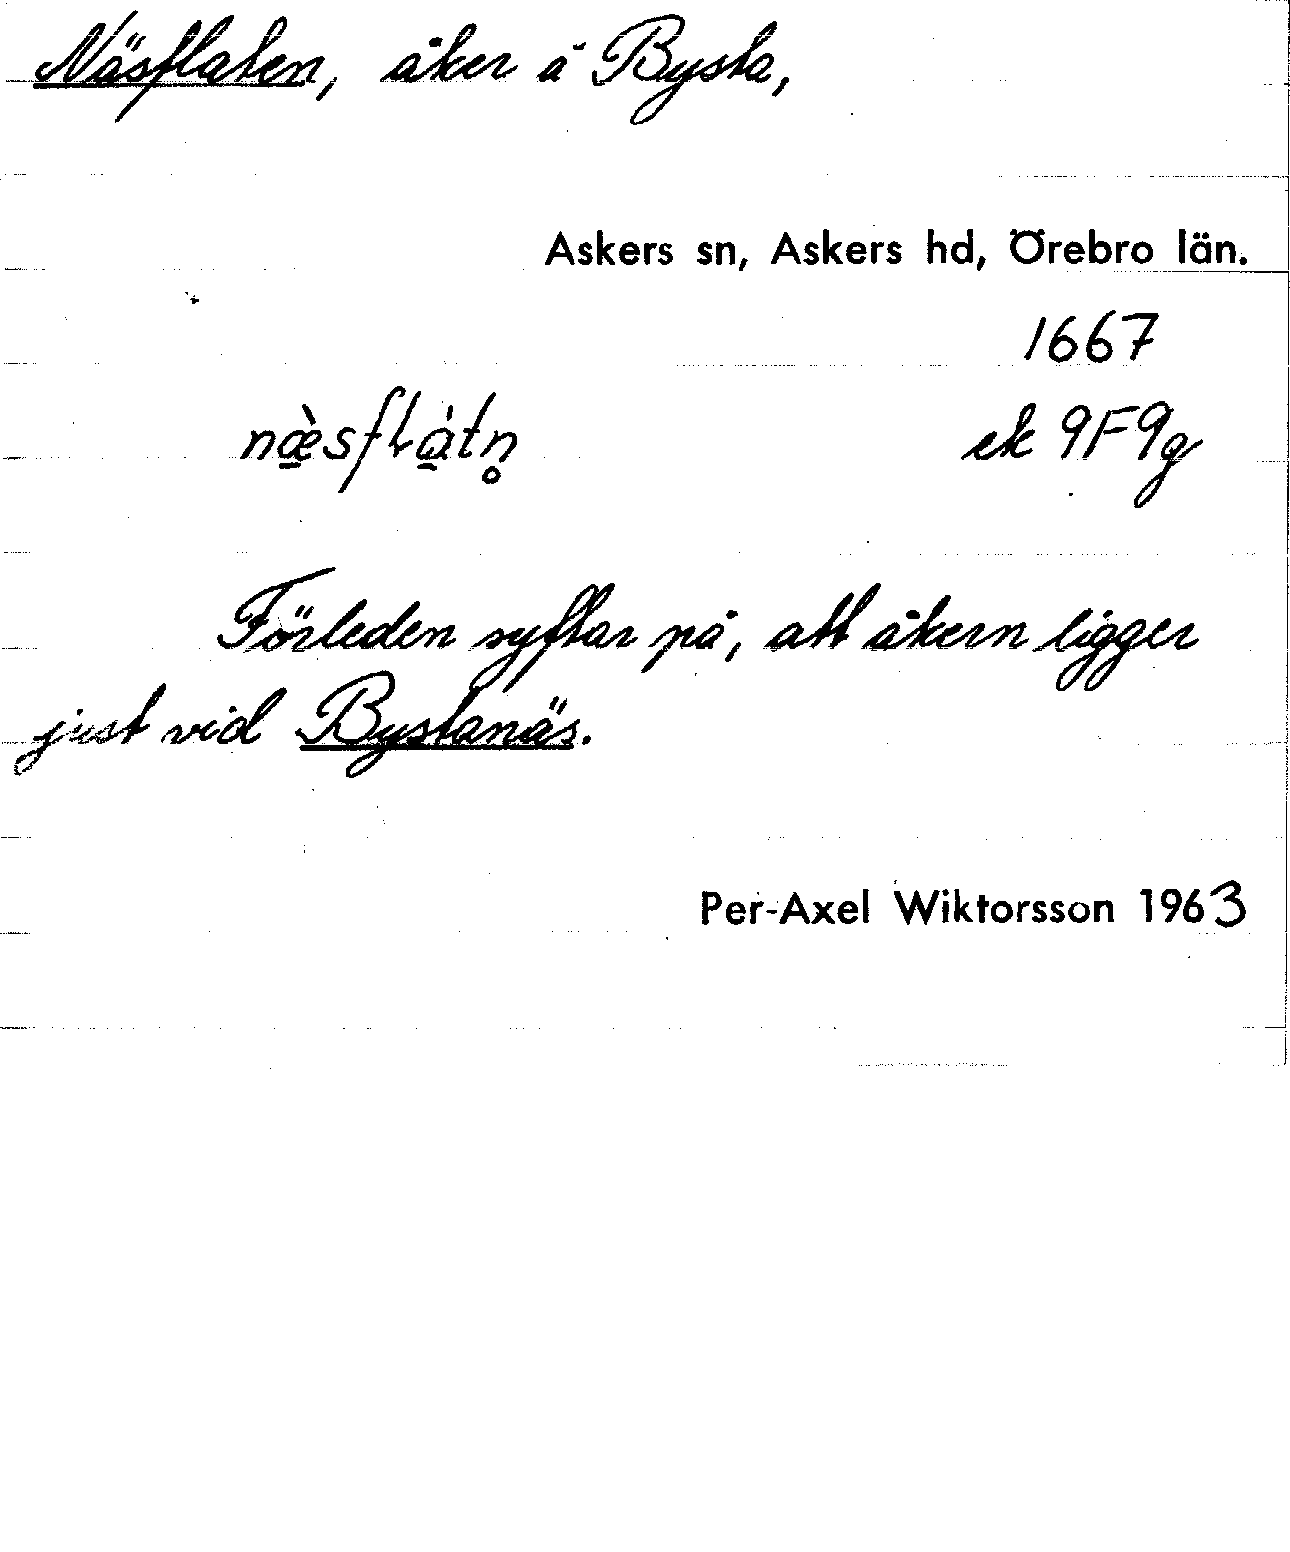 Näsflaten, åker å Bysta,
Askers sn, Askers hd, Örebro län.
1667
næ̀sflàtn̥ ek 9F9g
Förleden syftar på, att åkern ligger
just vid Bystanäs.
Per-Axel Wiktorsson 1963